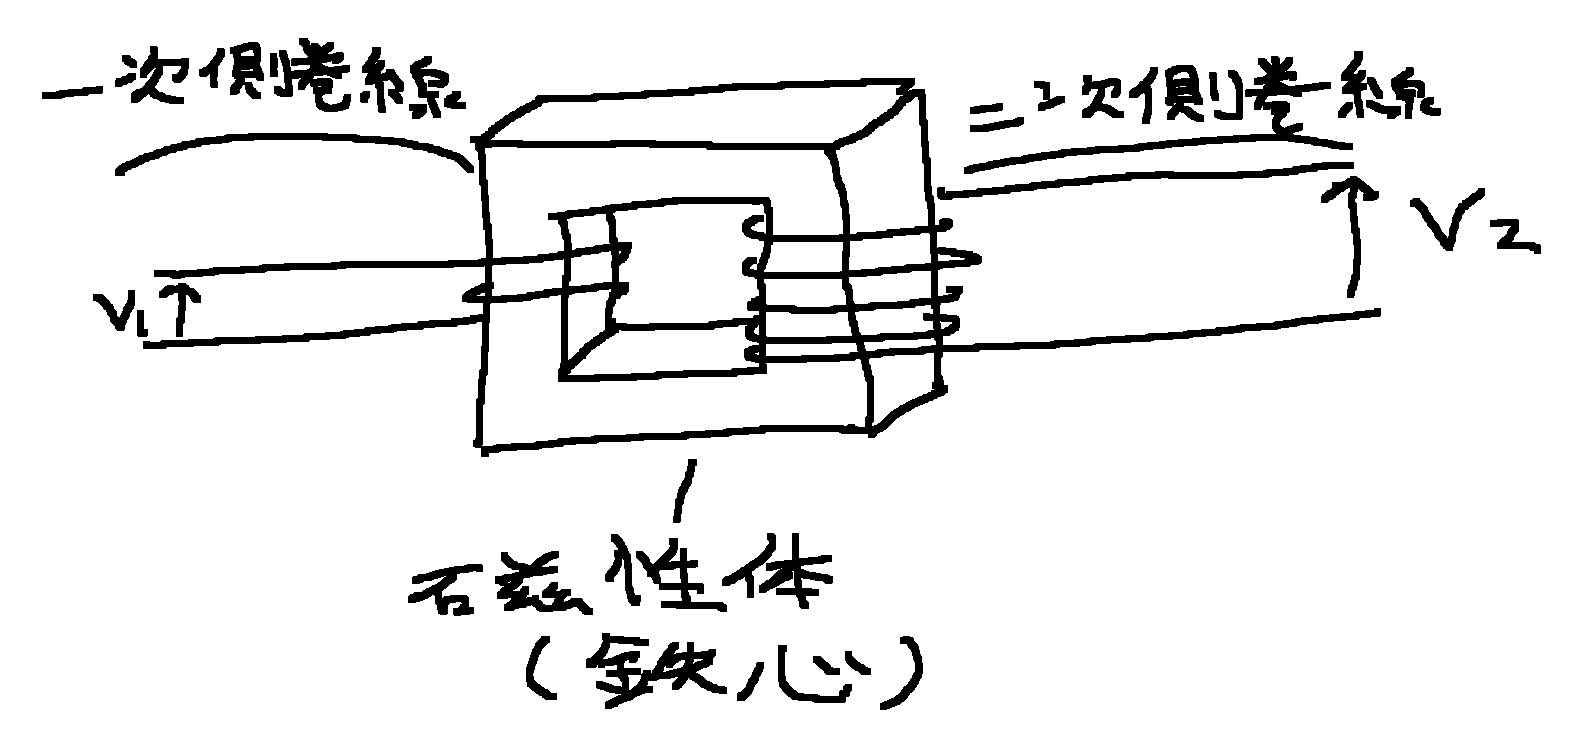 一次側巻線
二次側巻線
V1
V2
磁性体
(鉄心)